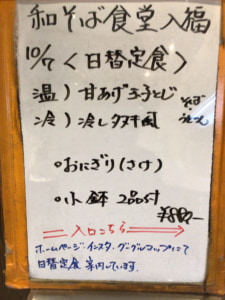 和そば食堂 入福
10/7 〈日替定食〉
温) 甘あげ玉子とじ
冷) 冷しタヌキ
そば
うどん
•おにぎり(さけ)
•小鉢 2品付
入口こちら
ホームページ.インスタ.グーグルマップにて
日替定食 案内しています.